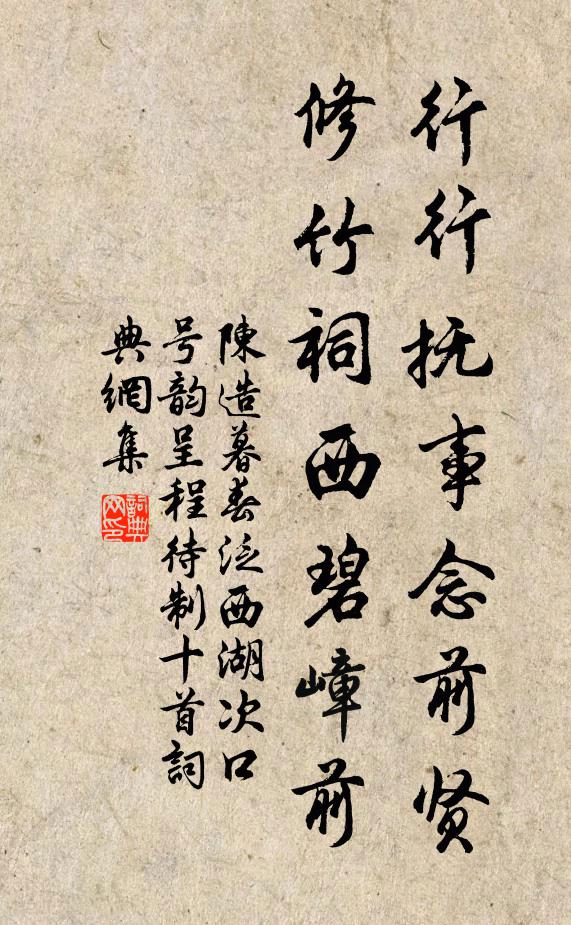 行行抚事念前贤
修竹祠西碧嶂前
陳造暮春泛西湖次口
号韵呈程待制十首詞
典網集
詞典
网印